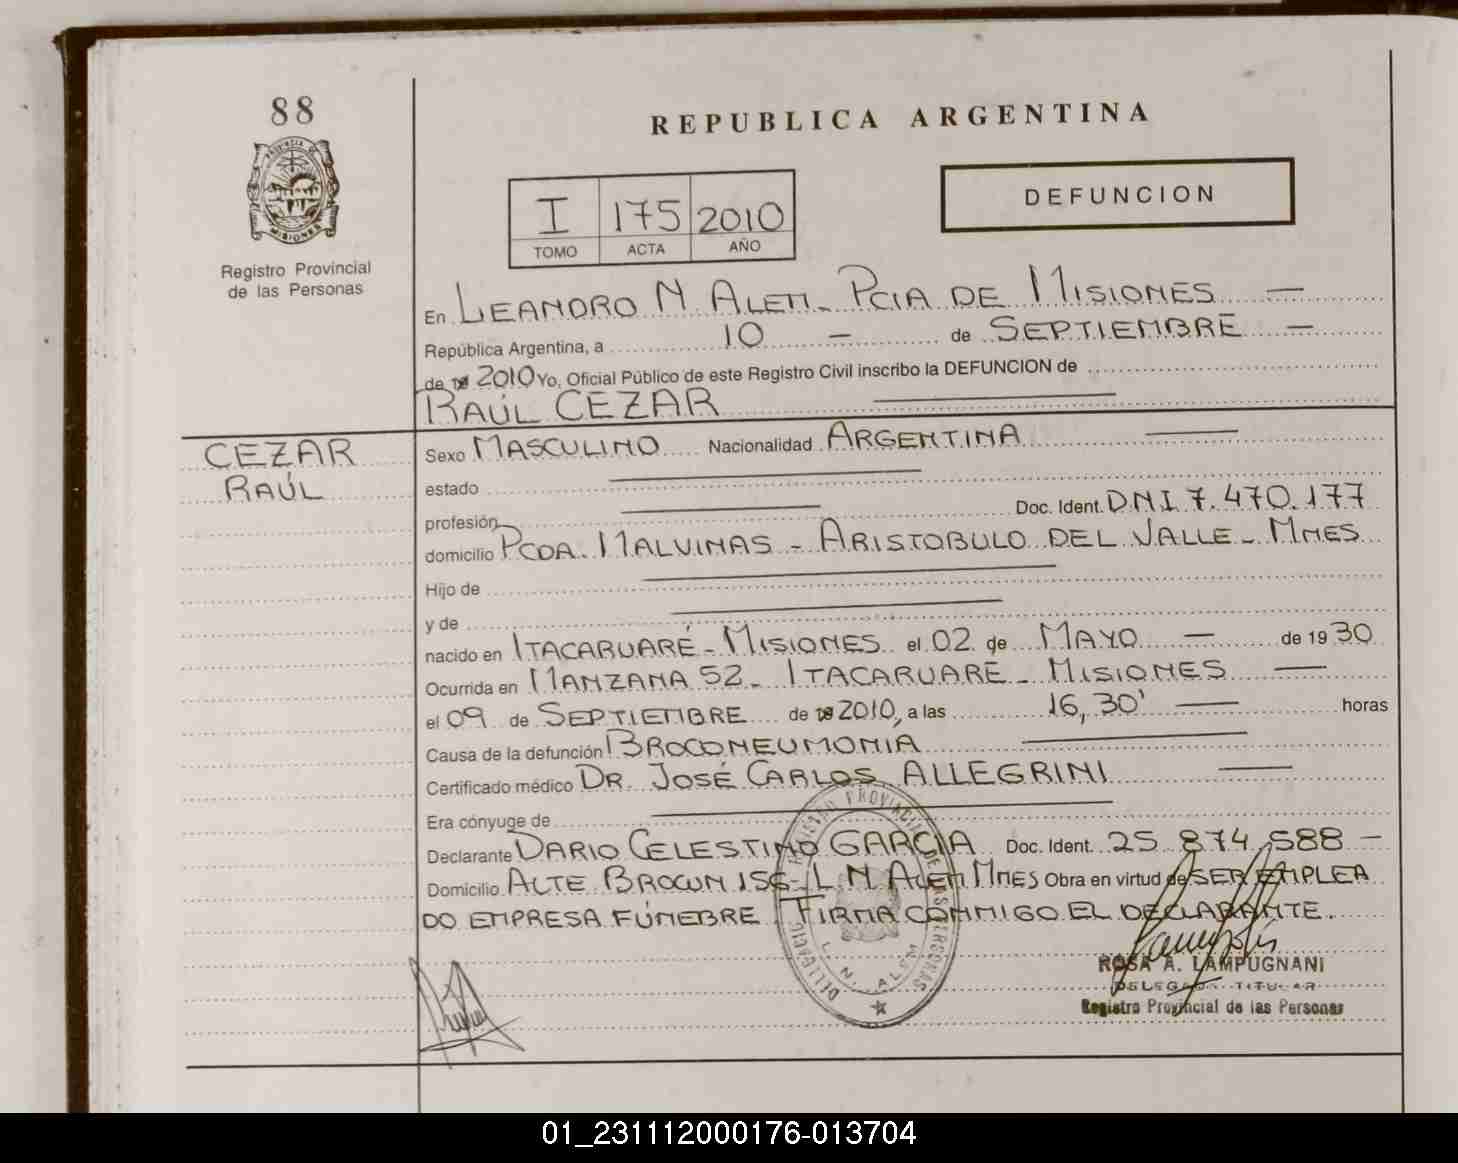 88
REPUBLICA ARGENTINA
PROVINCIA DE
MISIONES
Registro Provincial
de las Personas
I 175 2010
TOMO ACTA AÑO
DEFUNCION
En LEANDRO N. ALEM - PCIA DE MISIONES —
República Argentina, a 10 — de SEPTIEMBRE —
de 19 2010 Yo, Oficial Público de este Registro Civil inscribo la DEFUNCION de
RAÚL CEZAR
CEZAR
RAÚL
Sexo MASCULINO Nacionalidad ARGENTINA
estado
profesión Doc. Ident. DNI 7.470.177
domicilio PCDA. MALVINAS - ARISTOBULO DEL VALLE - MNES
Hijo de
y de
nacido en ITACARUARÉ - MISIONES el 02 de MAYO — de 19 30
Ocurrida en MANZANA 52 - ITACARUARE - MISIONES —
el 09 de SEPTIEMBRE de 19 2010, a las 16,30' — horas
Causa de la defunción BROCONEUMONIA
Certificado médico DR. JOSÉ CARLOS ALLEGRINI —
Era cónyuge de
Declarante DARIO CELESTINO GARCIA Doc. Ident. 25.874.588 —
Domicilio ALTE BROWN 156 - L N ALEM MNES Obra en virtud de SER EMPLEA
DO EMPRESA FÚNEBRE FIRMA CONMIGO EL DECLARANTE.
REGISTRO PROVINCIAL DE LAS PERSONAS
DELEGACIO
L. N. ALEM
ROSA A. LAMPUGNANI
DELEGADA TITULAR
Registro Provincial de las Personas
01_231112000176-013704